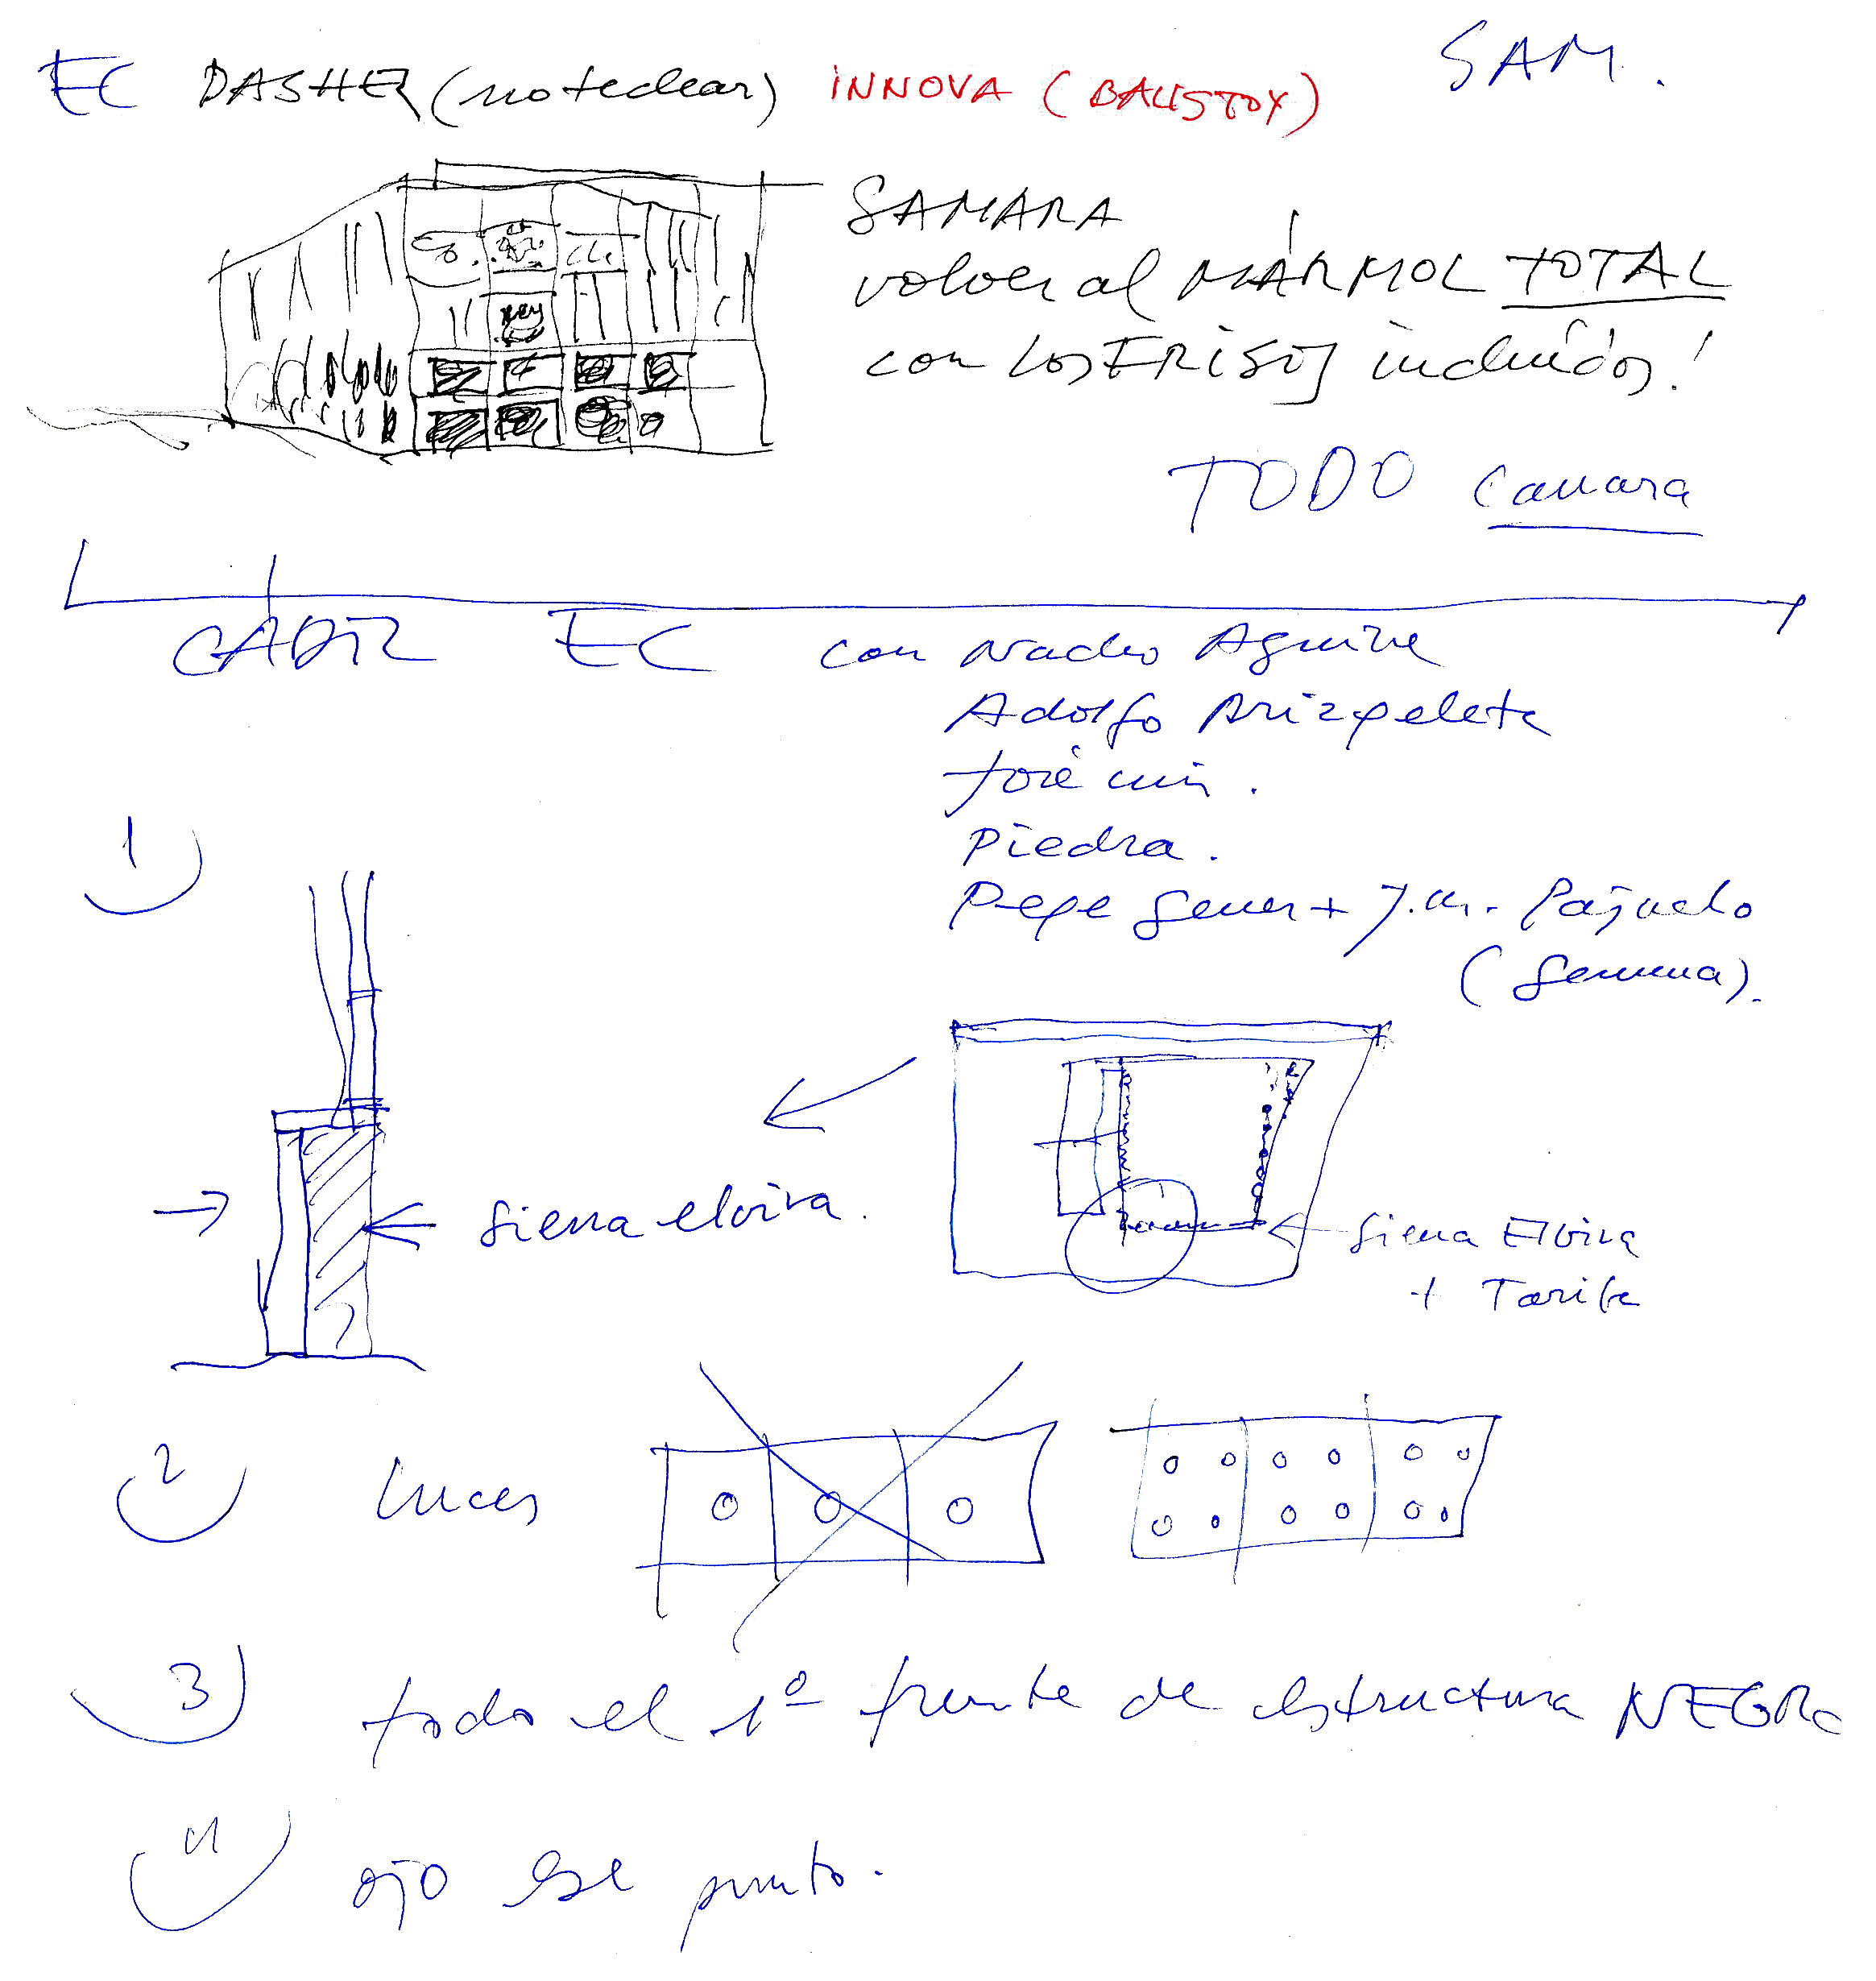 EC DASHER (no teclear) INNOVA (BALISTOX) SAM.
SAMARA
volver al MÁRMOL TOTAL
con los FRISOS incluídos!
TODO Camara
CADIZ EC con Nacho Aguirre
Adolfo Arizpeleta
José mª.
Piedra.
Pepe Gener + J.M. Pajuelo
(Gemma).
1
Sierra elvira.
Sierra Elvira
+ Tarifa
2 Luces
3 todo el 1º frente de estructura NEGRO
4 ojo ese punto.